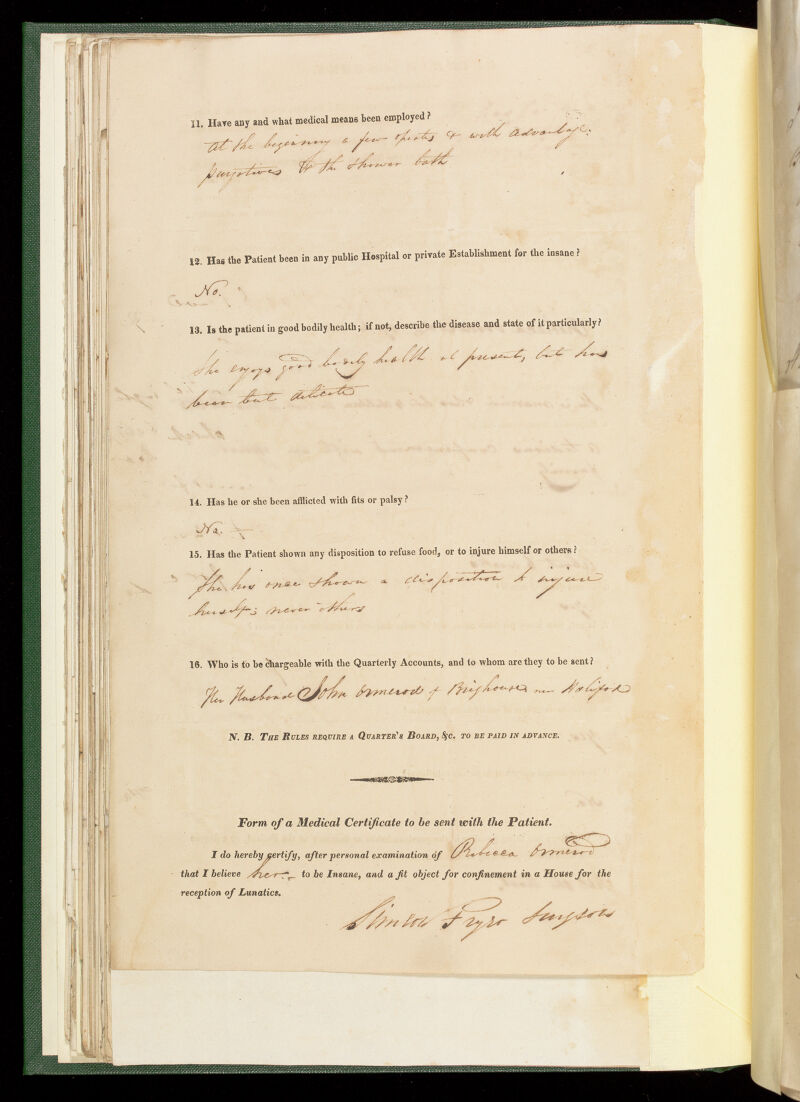 11. Have any and what medical means been employed?
At the beginning a few & with advantage:
purgatives & the shower bath
12. Has the Patient been in any public Hospital or private Establishment for the insane?
No.
13. Is the patient in good bodily health; if not, describe the disease and state of it particularly?
She enjoys good bodily health at present, but has
been but delicate
14. Has he or she been afflicted with fits or palsy?
No.
15. Has the Patient shown any disposition to refuse food, or to injure himself or others?
She has once shown a disposition to injure
herself; never others
16. Who is to be chargeable with the Quarterly Accounts, and to whom are they to be sent?
Her Husband John Ormerod of Brighouse near Halifax
N. B. The Rules require a Quarter's Board, &c. to be paid in advance.
Form of a Medical Certificate to be sent with the Patient.
I do hereby certify, after personal examination of Rebecca Ormerod
that I believe her to be Insane, and a fit object for confinement in a House for the
reception of Lunatics.
Pryor Surgeon